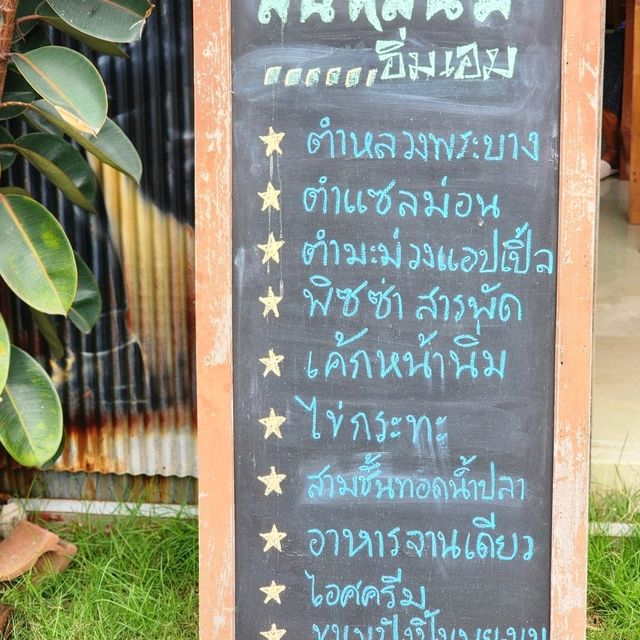 ......อิ่มเอม
ตำหลวงพระบาง
ตำแซลม่อน
ตำมะม่วงแอปเปิ้ล
พิซซ่า สารพัด
เค้กหน้านิ่ม
ไข่กระทะ
สามชั้นทอดน้ำปลา
อาหารจานเดียว
ไอศครีม